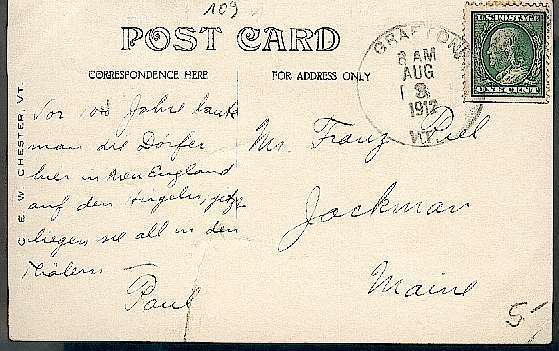 109
POST CARD
CORRESPONDENCE HERE
FOR ADDRESS ONLY
GRAFTON
8 AM
AUG
1912
VT.
U.S. POSTAGE
ONE CENT
C. E. W. CHESTER VT.
Vor 100 Jahre baute
man die Dörfer
hier in New England
auf den Hügeln, jetzt
liegen sie all in den
Thälern
Paul
Mr. Franz Piel
Jackman
Maine
5